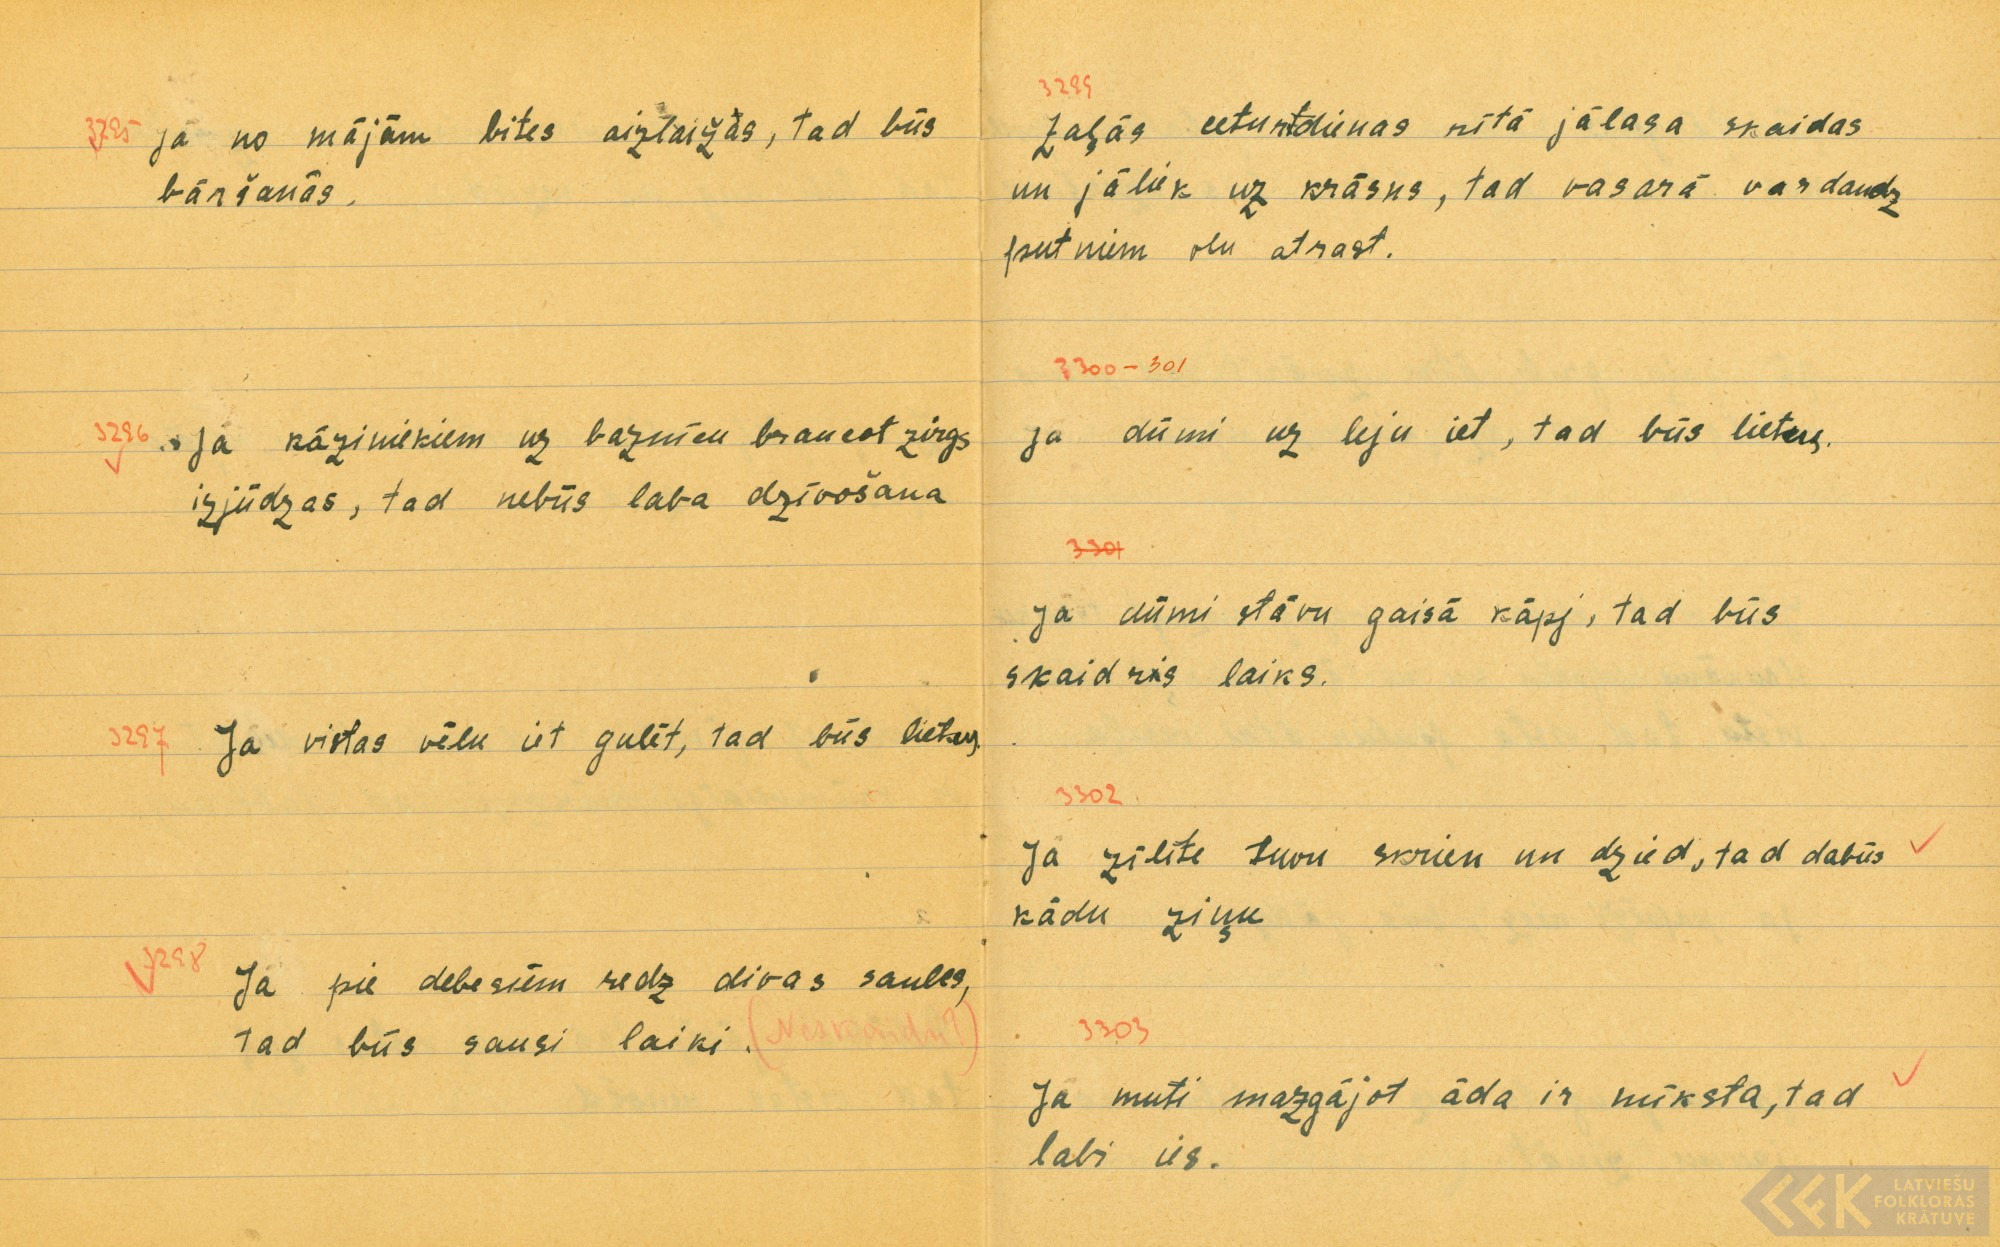 3295 Ja no mājām bites aizlaižas, tad būs
bāršanās.
3296 Ja kāziniekiem uz baznīcu braucot zirgs
izjūdzas, tad nebūs laba dzīvošana
3297 Ja vistas vēlu iet gulēt, tad būs lietus.
3298 Ja pie debesīm redz divas saules,
tad būs sausi laiki. (Neskaidri?)
3299
Zaļās ceturtdienas rītā jālasa skaidas
un jāliek uz krāsns, tad vasarā var daudz
putniem olu atrast.
3300-301
Ja dūmi uz leju iet, tad būs lietus.
3301
Ja dūmi stāvu gaisā kāpj, tad būs
skaidris laiks.
3302
Ja zīlīte tuvu skrien un dzied, tad dabūs
kādu ziņu
3303
Ja muti mazgājot āda ir mīksta, tad
labi ies.
LATVIEŠU
FOLKLORAS
KRĀTUVE